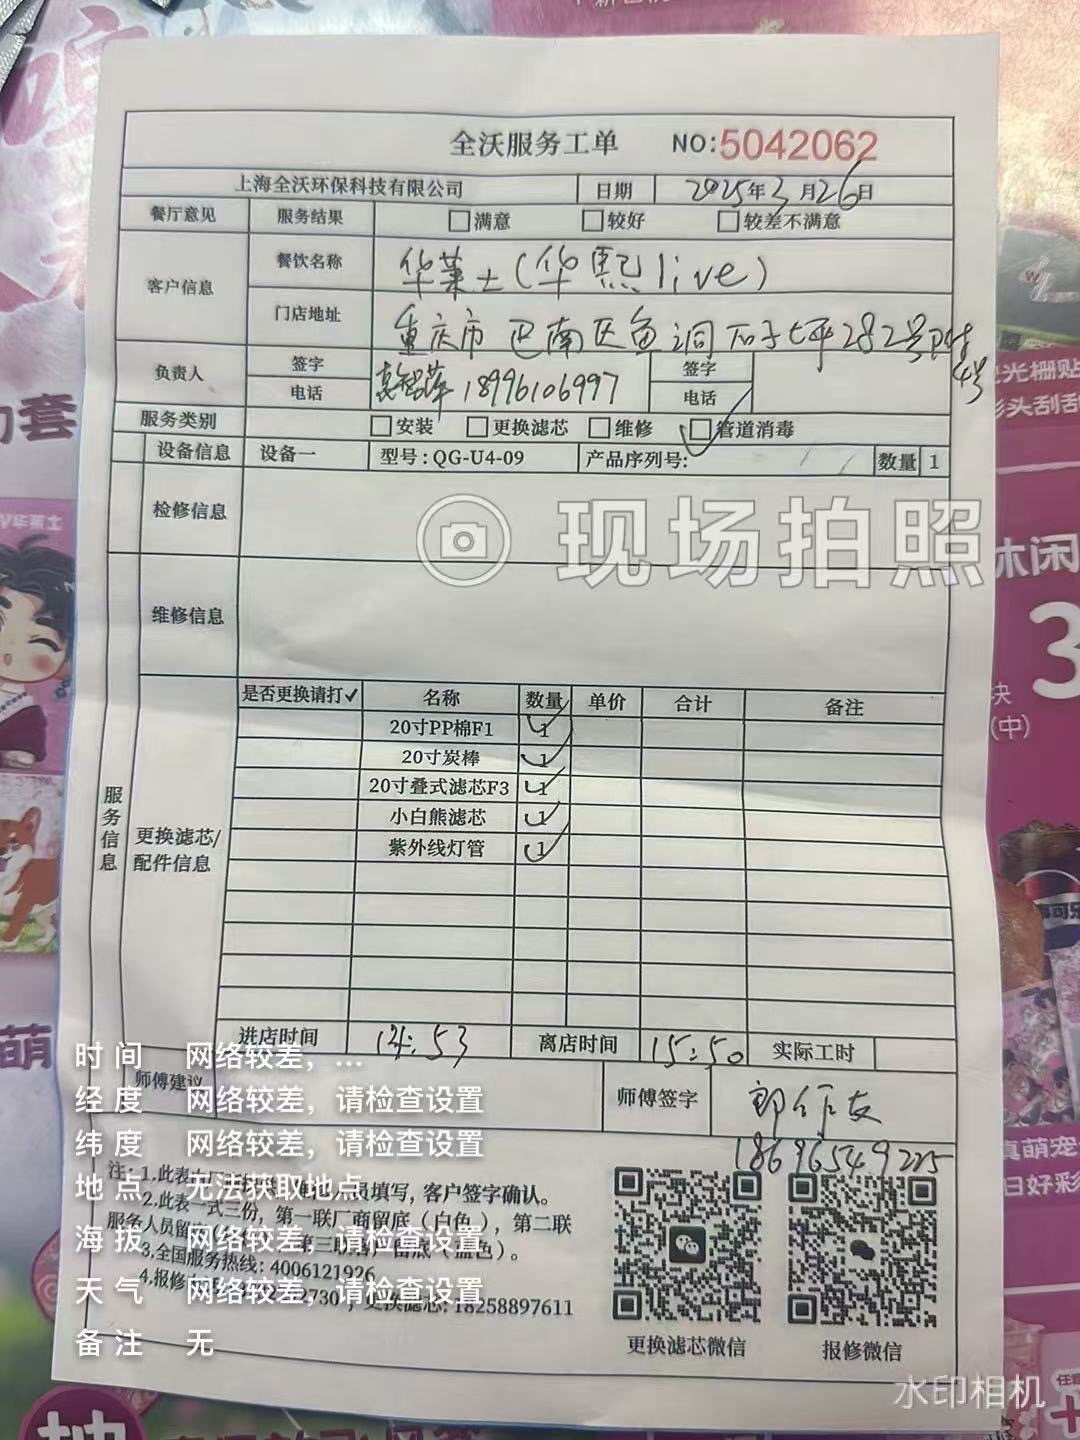 全沃服务工单 NO:5042062
上海全沃环保科技有限公司 日期 2025年3月26日
餐厅意见 服务结果 满意 较好 较差不满意
客户信息 餐饮名称 华莱士(华熙live)
门店地址 重庆市巴南区鱼洞石子坪282号附
4号
负责人 签字 签字
电话 18996106997 电话
服务类别 安装 更换滤芯 维修 管道消毒
设备信息 设备一 型号:QG-U4-09 产品序列号: 数量 1
检修信息
现场拍照
维修信息
服务信息
更换滤芯/
配件信息
是否更换请打✓ 名称 数量 单价 合计 备注
20寸PP棉F1 1
20寸炭棒 1
20寸叠式滤芯F3 1
小白熊滤芯 1
紫外线灯管 1
进店时间 14:53 离店时间 15:50 实际工时
师傅建议 师傅签字
18696549225
注:1.此表 员填写,客户签字确认。
2.此表一式三份,第一联厂商留底(白色),第二联
服务人员留 第三联
3.全国服务热线:4006121926
4.报修 更换滤芯:18258897611
更换滤芯微信 报修微信
时间 网络较差,...
经度 网络较差,请检查设置
纬度 网络较差,请检查设置
地点 无法获取地点
海拔 网络较差,请检查设置
天气 网络较差,请检查设置
备注 无
水印相机
华莱士
休闲
3
块
(中)
萌
真萌宠
日好彩